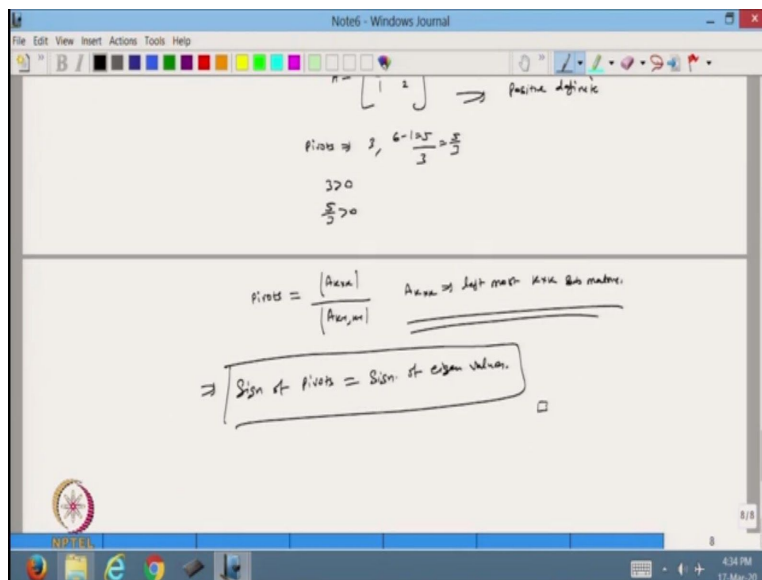 Note6 - Windows Journal
File Edit View Insert Actions Tools Help
B I
[1 2] ⇒ Positive definite
Pivots ⇒ 3, 6-1=5/3 = 5/3
3>0
5/3>0
Pivots = |AKxK| / |AK-1,K-1| AKxK ⇒ left most KxK Sub matrix.
⇒ Sign of Pivots = Sign of eigen values.
8/8
NPTEL
8
4:34 PM
17-Mar-20